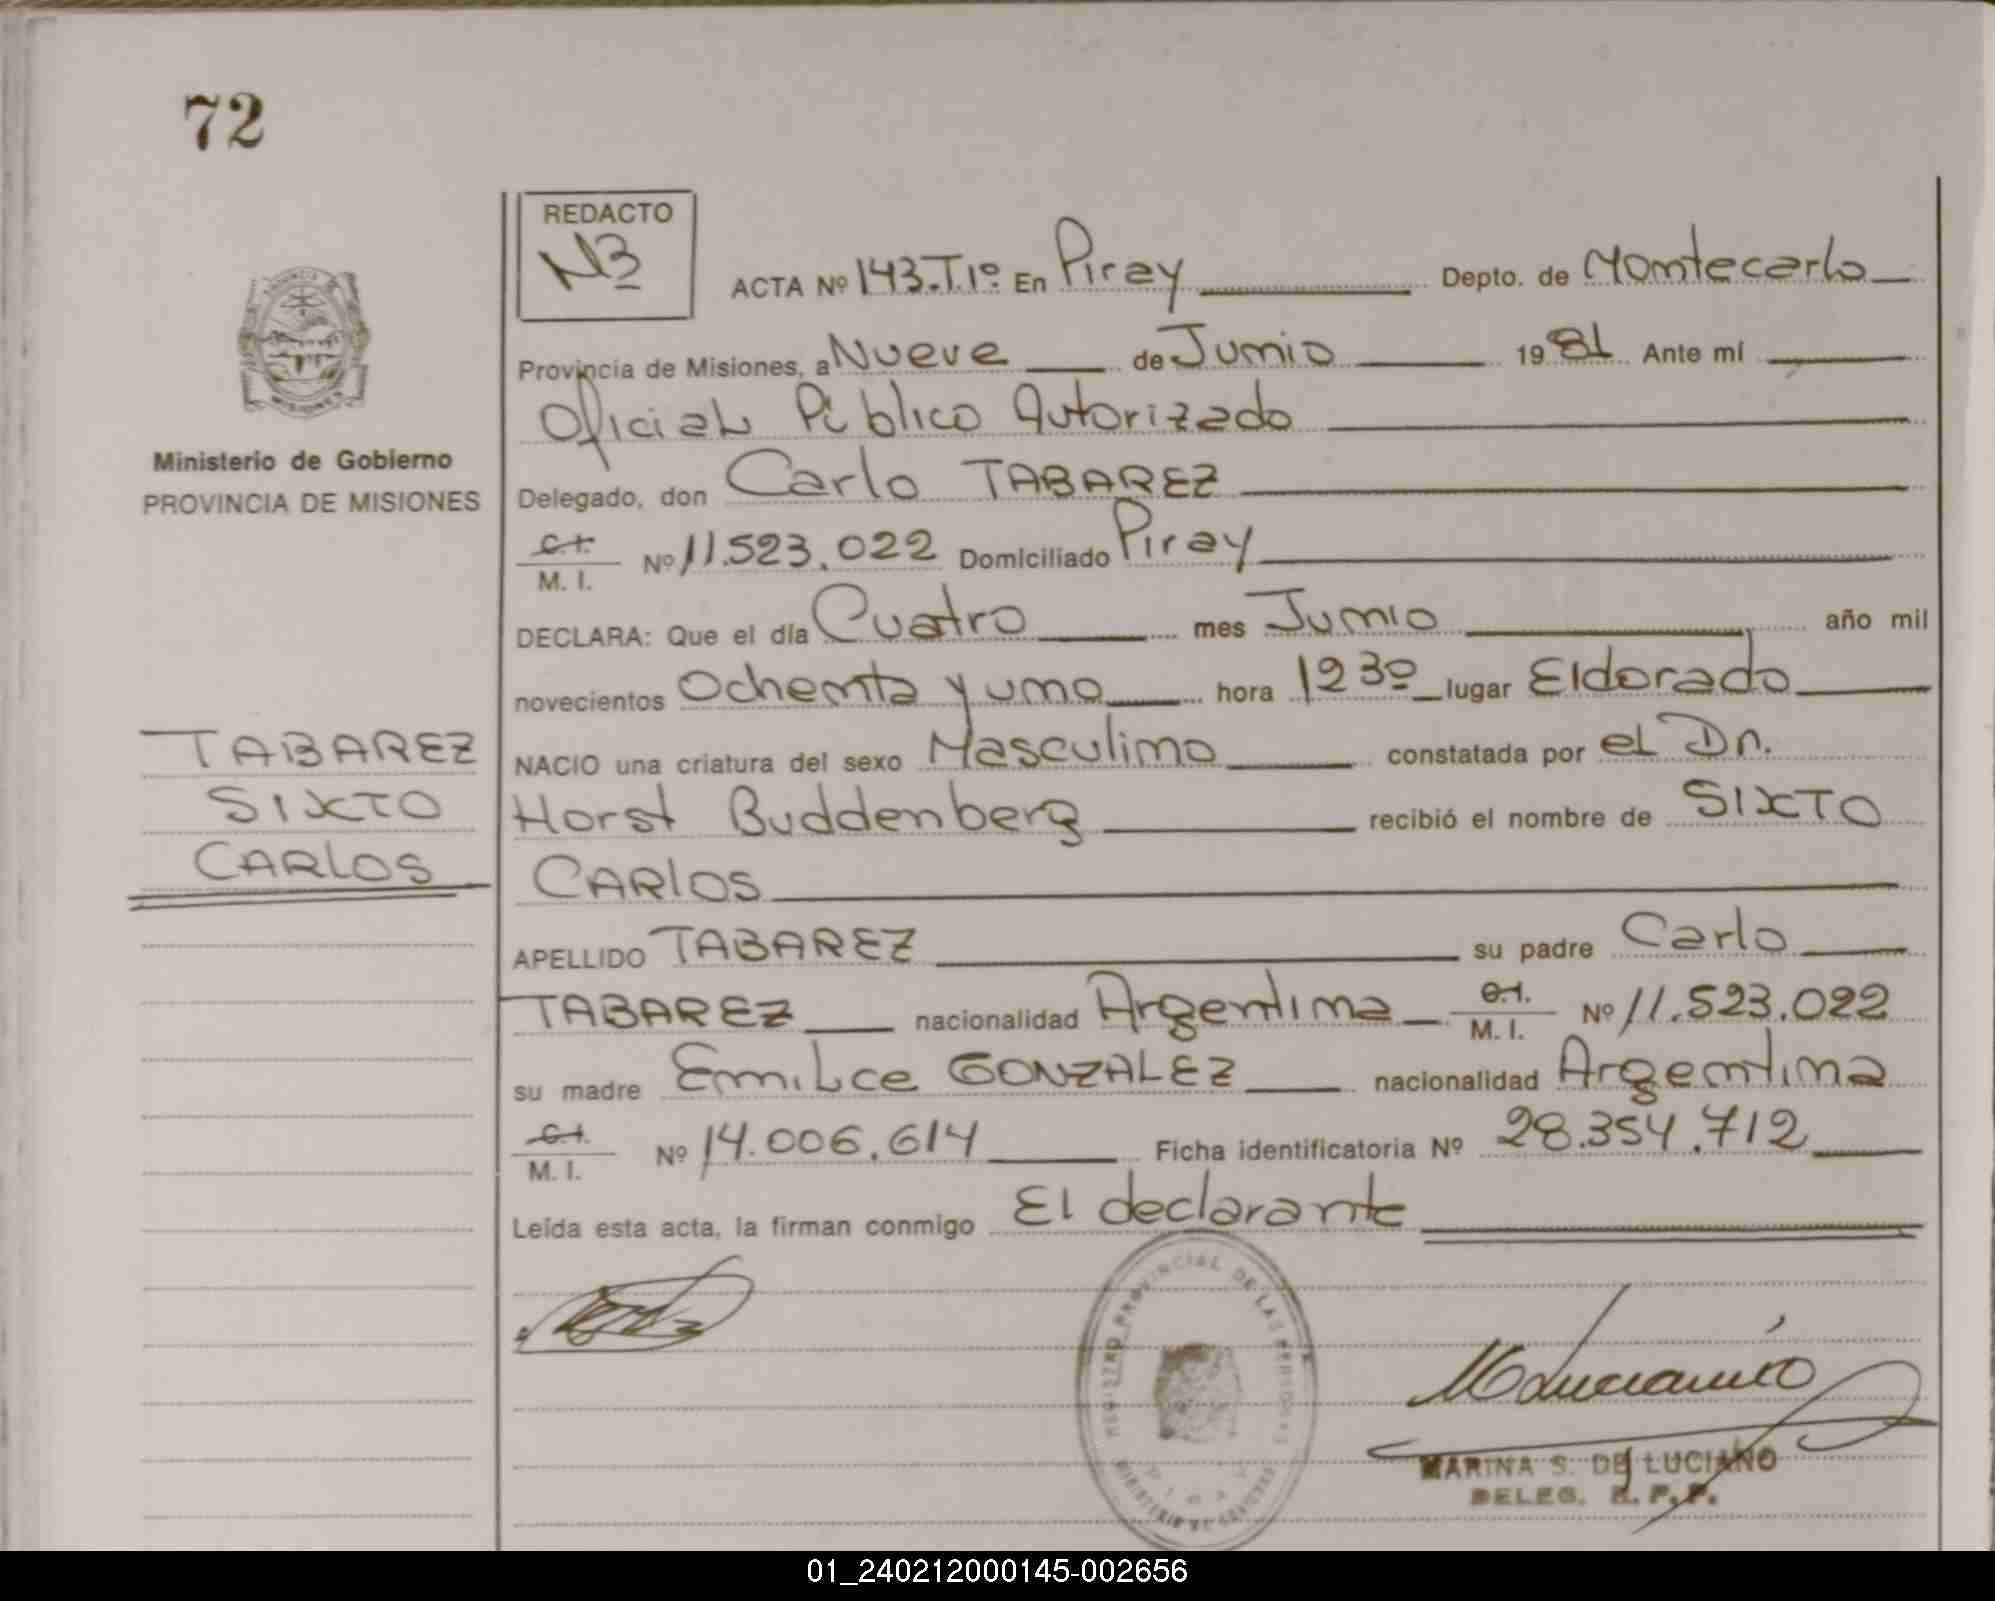 72
REDACTO
N3
ACTA Nº 143.T.1º En Piray Depto. de Montecarlo
Provincia de Misiones, a Nueve de Junio 19 81 Ante mí
Oficial Público Autorizado
Delegado, don Carlo TABAREZ
C.I.
M. I. Nº 11.523.022 Domiciliado Piray
DECLARA: Que el día Cuatro mes Junio año mil
novecientos Ochenta y uno hora 12 30 lugar Eldorado
NACIO una criatura del sexo Masculino constatada por el Dr.
Horst Buddenberg recibió el nombre de SIXTO
CARlOS
APELLIDO TABAREZ su padre Carlo
TABAREZ nacionalidad Argentina C.I.
M. I. Nº 11.523.022
su madre Emilce GONZALEZ nacionalidad Argentina
C.I.
M. I. Nº 14.006.614 Ficha identificatoria Nº 28.354.712
Leída esta acta, la firman conmigo El declarante
Ministerio de Gobierno
PROVINCIA DE MISIONES
TABAREZ
SIXTO
CARLOS
REGISTRO PROVINCIAL DE LAS PERSONAS
MARINA S. DE LUCIANO
DELEG. R. P. P.
01_240212000145-002656